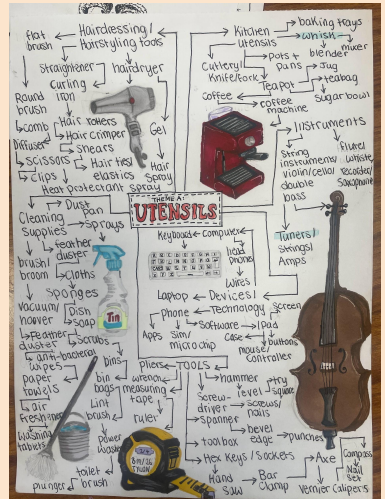 Flat brush
Hairdressing/
Hairstyling tools
Straightener
hairdryer
Curling iron
Round brush
Comb
Hair rollers
Hair crimper
Gel
Diffuser
Shears
Scissors
Hair ties/
elastics
Hair Spray
Clips
Heat protectant spray
Kitchen utensils
baking trays
whisk
mixer
blender
Cutlery/
Knife/fork
Pots + pans
Jug
Teapot
teabag
Sugar bowl
Coffee
coffee machine
Instruments
String instruments/
violin/cello/
double bass
flute/
whistle/
recorder/
saxophone
Tuners/
Strings/
Amps
THEME A:
UTENSILS
Cleaning Supplies
Dust pan
Sprays
feather duster
brush/
broom
Cloths
Sponges
vacuum/
hoover
Dish soap
Feather duster
Scrubs
anti-bacterial wipes
bins
paper towels
bin bags
air freshener
Lint brush
washing tablets
power washer
toilet brush
plunger
Tin
Keyboard
Computer
head phones
Wires
Laptop
Devices/
Technology
Phone
screen
Apps
Sim/
microchip
Software
iPad
Case
buttons
mouse/
Controller
TOOLS
Pliers
wrench
measuring tape
ruler
hammer
level
try square
Screw-
driver
screws/
nails
Spanner
bevel edge
punches
toolbox
Hex Keys / Sockets
Hand Saw
Bar Clamp
Axe
Compass
Nail Set
Vernier Calipers
8m/26